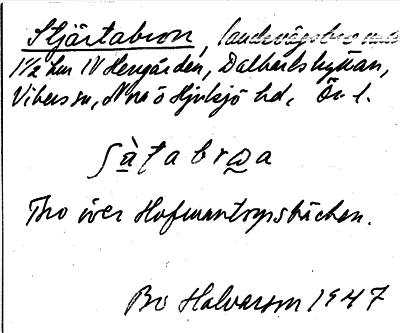 Stjärtabron, landsvägsbro
1½ km NV Hengården, Dalkarlshyttan,
Vibers sn, Nora ö Hjulsjö hd, Ör. l.
ʃà̱ṭabrọa
Bro över Hofmantorpsbäcken.
Bo Halvarson 1947